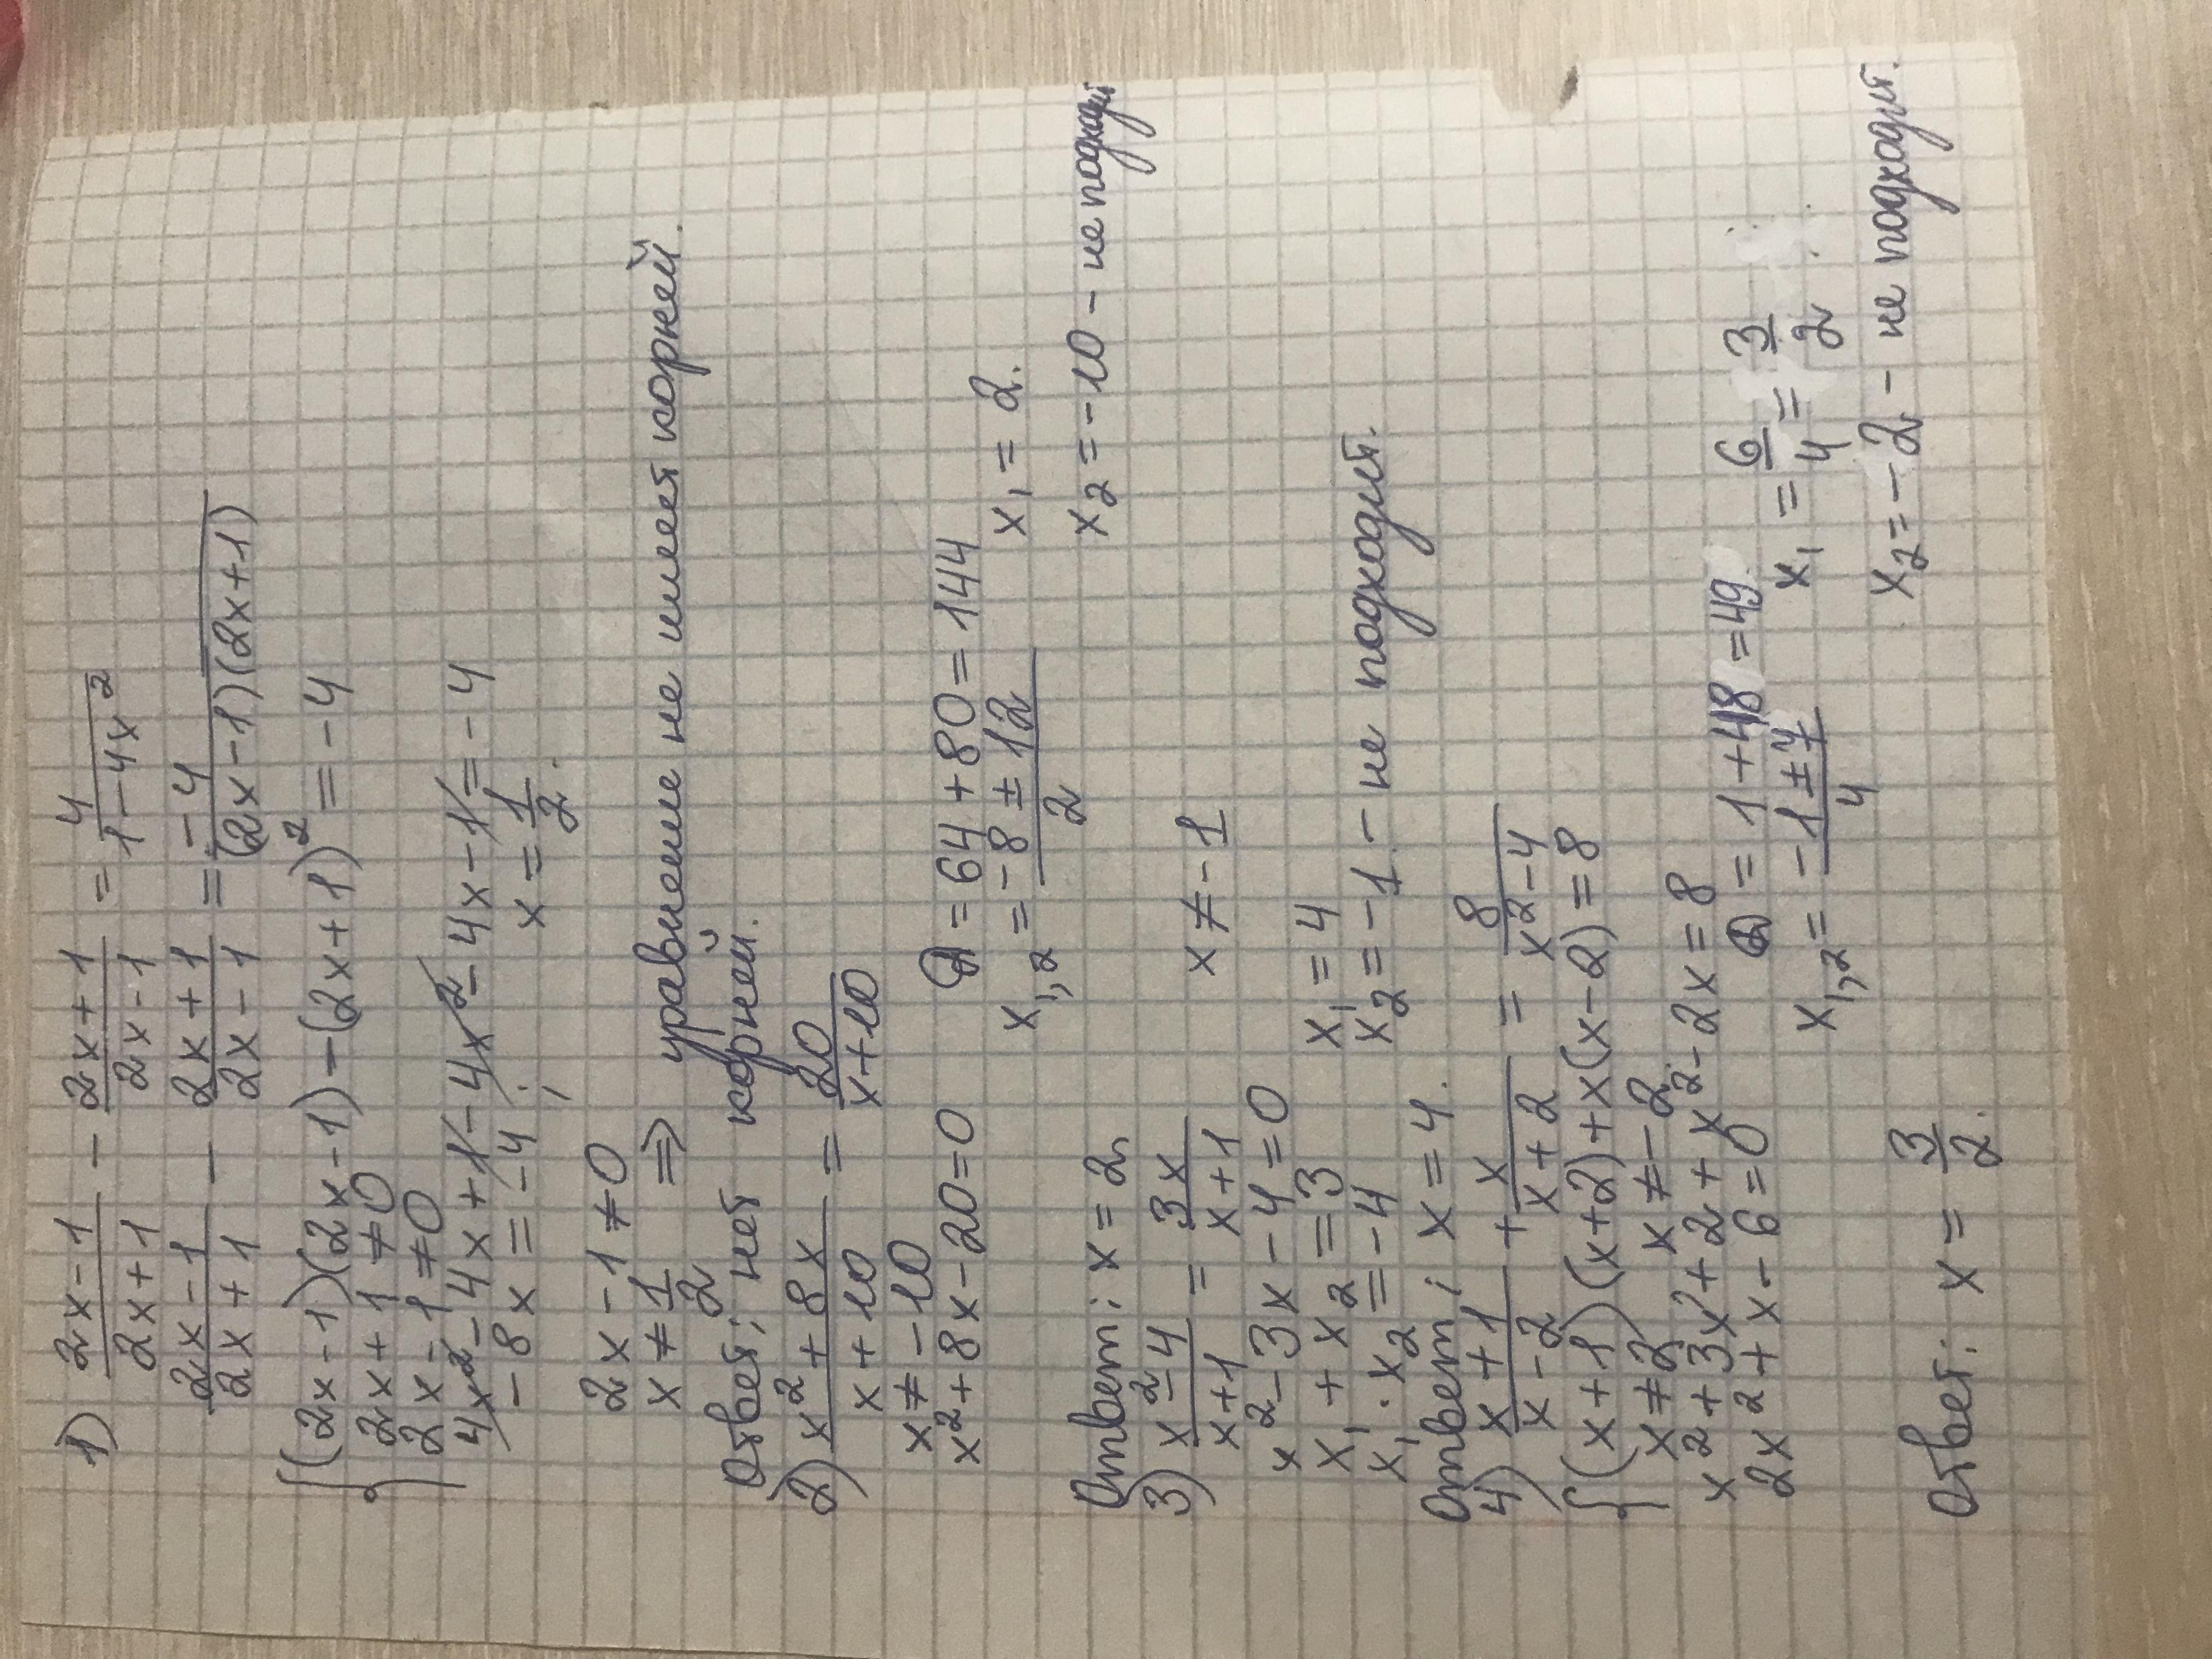 1) (2x-1)/(2x+1) - (2x+1)/(2x-1) = 4/(1-4x²)
(2x-1)/(2x+1) - (2x+1)/(2x-1) = -4/((2x-1)(2x+1))
{(2x-1)(2x-1)-(2x+1)²=-4
2x+1≠0
2x-1≠0
4x²-4x+1-4x²-4x-1=-4
-8x=-4; x=1/2.
2x-1≠0
x≠1/2 ⇒ уравнение не имеет корней.
Ответ: нет корней.
2) (x²+8x)/(x+10) = 20/(x+10)
x≠-10
x²+8x-20=0 D=64+80=144
x1,2=(-8±12)/2 x1=2.
x2=-10 - не подходит
Ответ: x=2
3) (x²-4)/(x+1) = 3x/(x+1) x≠-1
x²-3x-4=0
x1+x2=3 x1=4
x1·x2=-4 x2=-1 - не подходит.
Ответ: x=4.
4) (x+1)/(x-2) + x/(x+2) = 8/(x²-4)
{(x+1)(x+2)+x(x-2)=8
x≠2 x≠-2
x²+3x+2+x²-2x=8
2x²+x-6=0 D=1+48=49
x1,2=(-1±7)/4 x1=6/4=3/2
x2=-2 - не подходит.
Ответ: x=3/2.